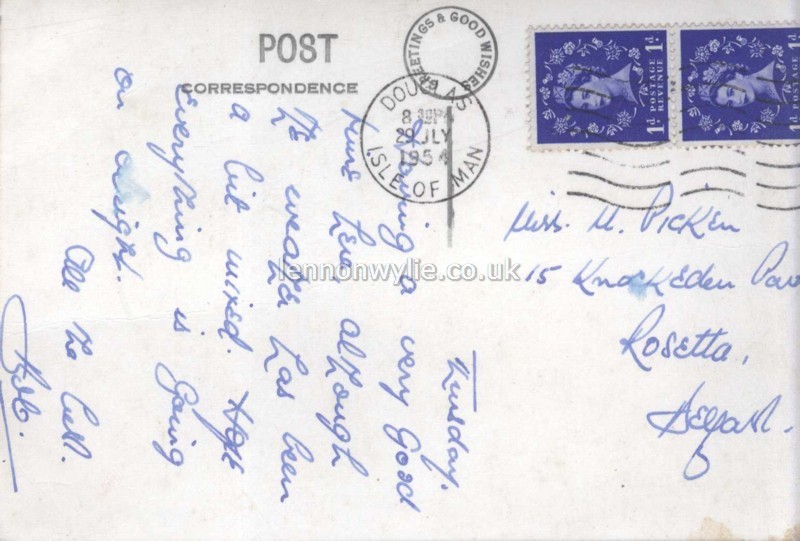 POST
CORRESPONDENCE
GREETINGS & GOOD WISHES
DOUGLAS
8
29 JLY
1954
ISLE OF MAN
1D POSTAGE REVENUE 1D
1D POSTAGE REVENUE 1D
Tuesday.
Having a very good
time here although
the weather has been
a bit mixed. Hope
everything is going
on alright.
All the best.
Miss. M. Picken
15 Knockeden
Rosetta,
Belfast.
lennonwylie.co.uk